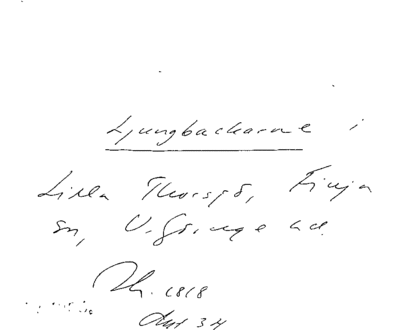 Ljungbackarne i
Lilla Thorsjö, Finja
sn, V. Göinge hd.
1818
34